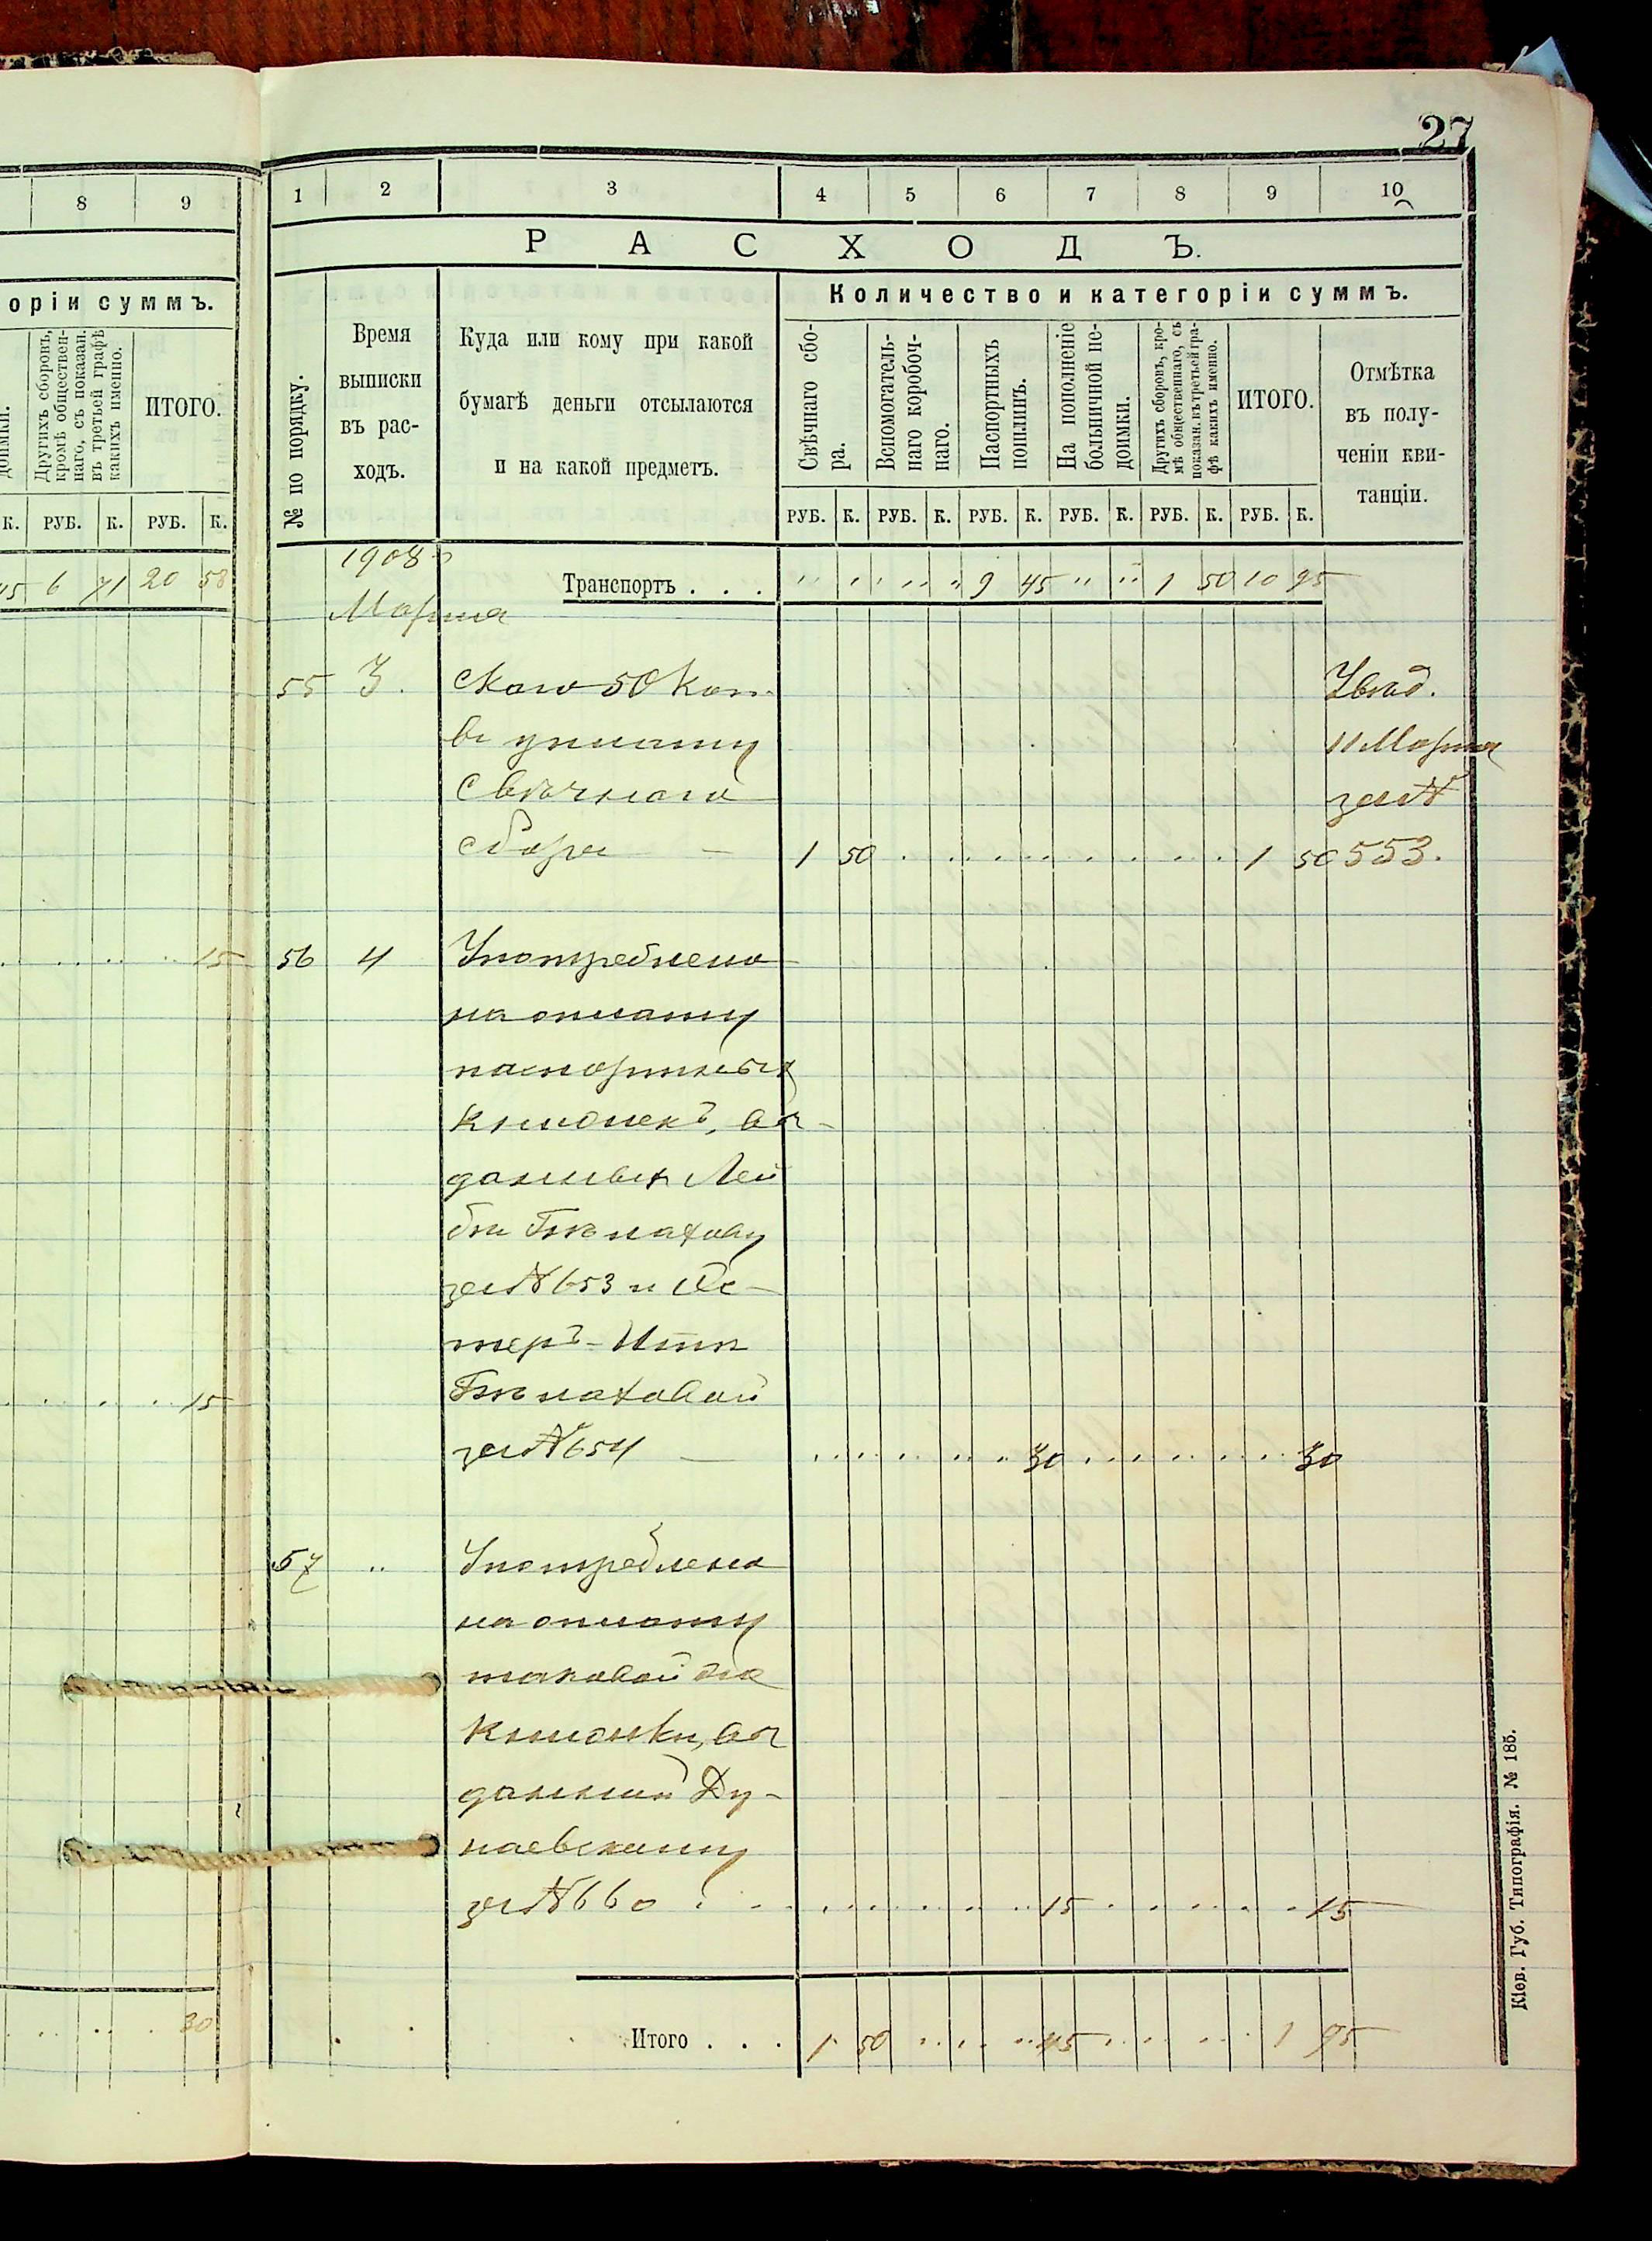 27
8 9
1 2 3 4 5 6 7 8 9 10
РАСХОДЪ.
оріи суммъ.
Количество и категоріи суммъ.
Другихъ сборовъ,
кромѣ обществен-
наго, съ показан.
въ третьей графѣ
какихъ именно.
ИТОГО.
№ по порядку.
Время
выписки
въ рас-
ходъ.
Куда или кому при какой
бумагѣ деньги отсылаются
и на какой предметъ.
Свѣчнаго сбо-
ра.
Вспомогатель-
наго коробоч-
наго.
Паспортныхъ
поплинъ.
На пополненіе
больничной не-
доимки.
Другихъ сборовъ, кро-
мѣ общественнаго, съ
показан. въ третьей гра-
фѣ какихъ именно.
ИТОГО.
Отмѣтка
въ полу-
ченіи кви-
танціи.
К. РУБ. К. РУБ. К.
РУБ. К. РУБ. К. РУБ. К. РУБ. К. РУБ. К. РУБ. К.
45 6 71 20 58
1908
Транспортъ . . . " " " " 9 45 " " 1 50 10 95
Марта
55 3.
50 коп.
въ уплату
Свѣчнаго
сбора — 1 50 1 50
11 Марта
за №
553.
15 56 4 Употреблено
на оплату
паспортныхъ
книжекъ, вы-
данныхъ Лей
за № 653 и Эс-
теръ-
15
за № 654 — 30 30
57 " Употреблено
на оплату
таковой же
книжки, вы
данной Ду-
наевскому
за № 660 15 15
30
Итого . . . 1 50 45 1 95
Кіев. Губ. Типографія. № 185.